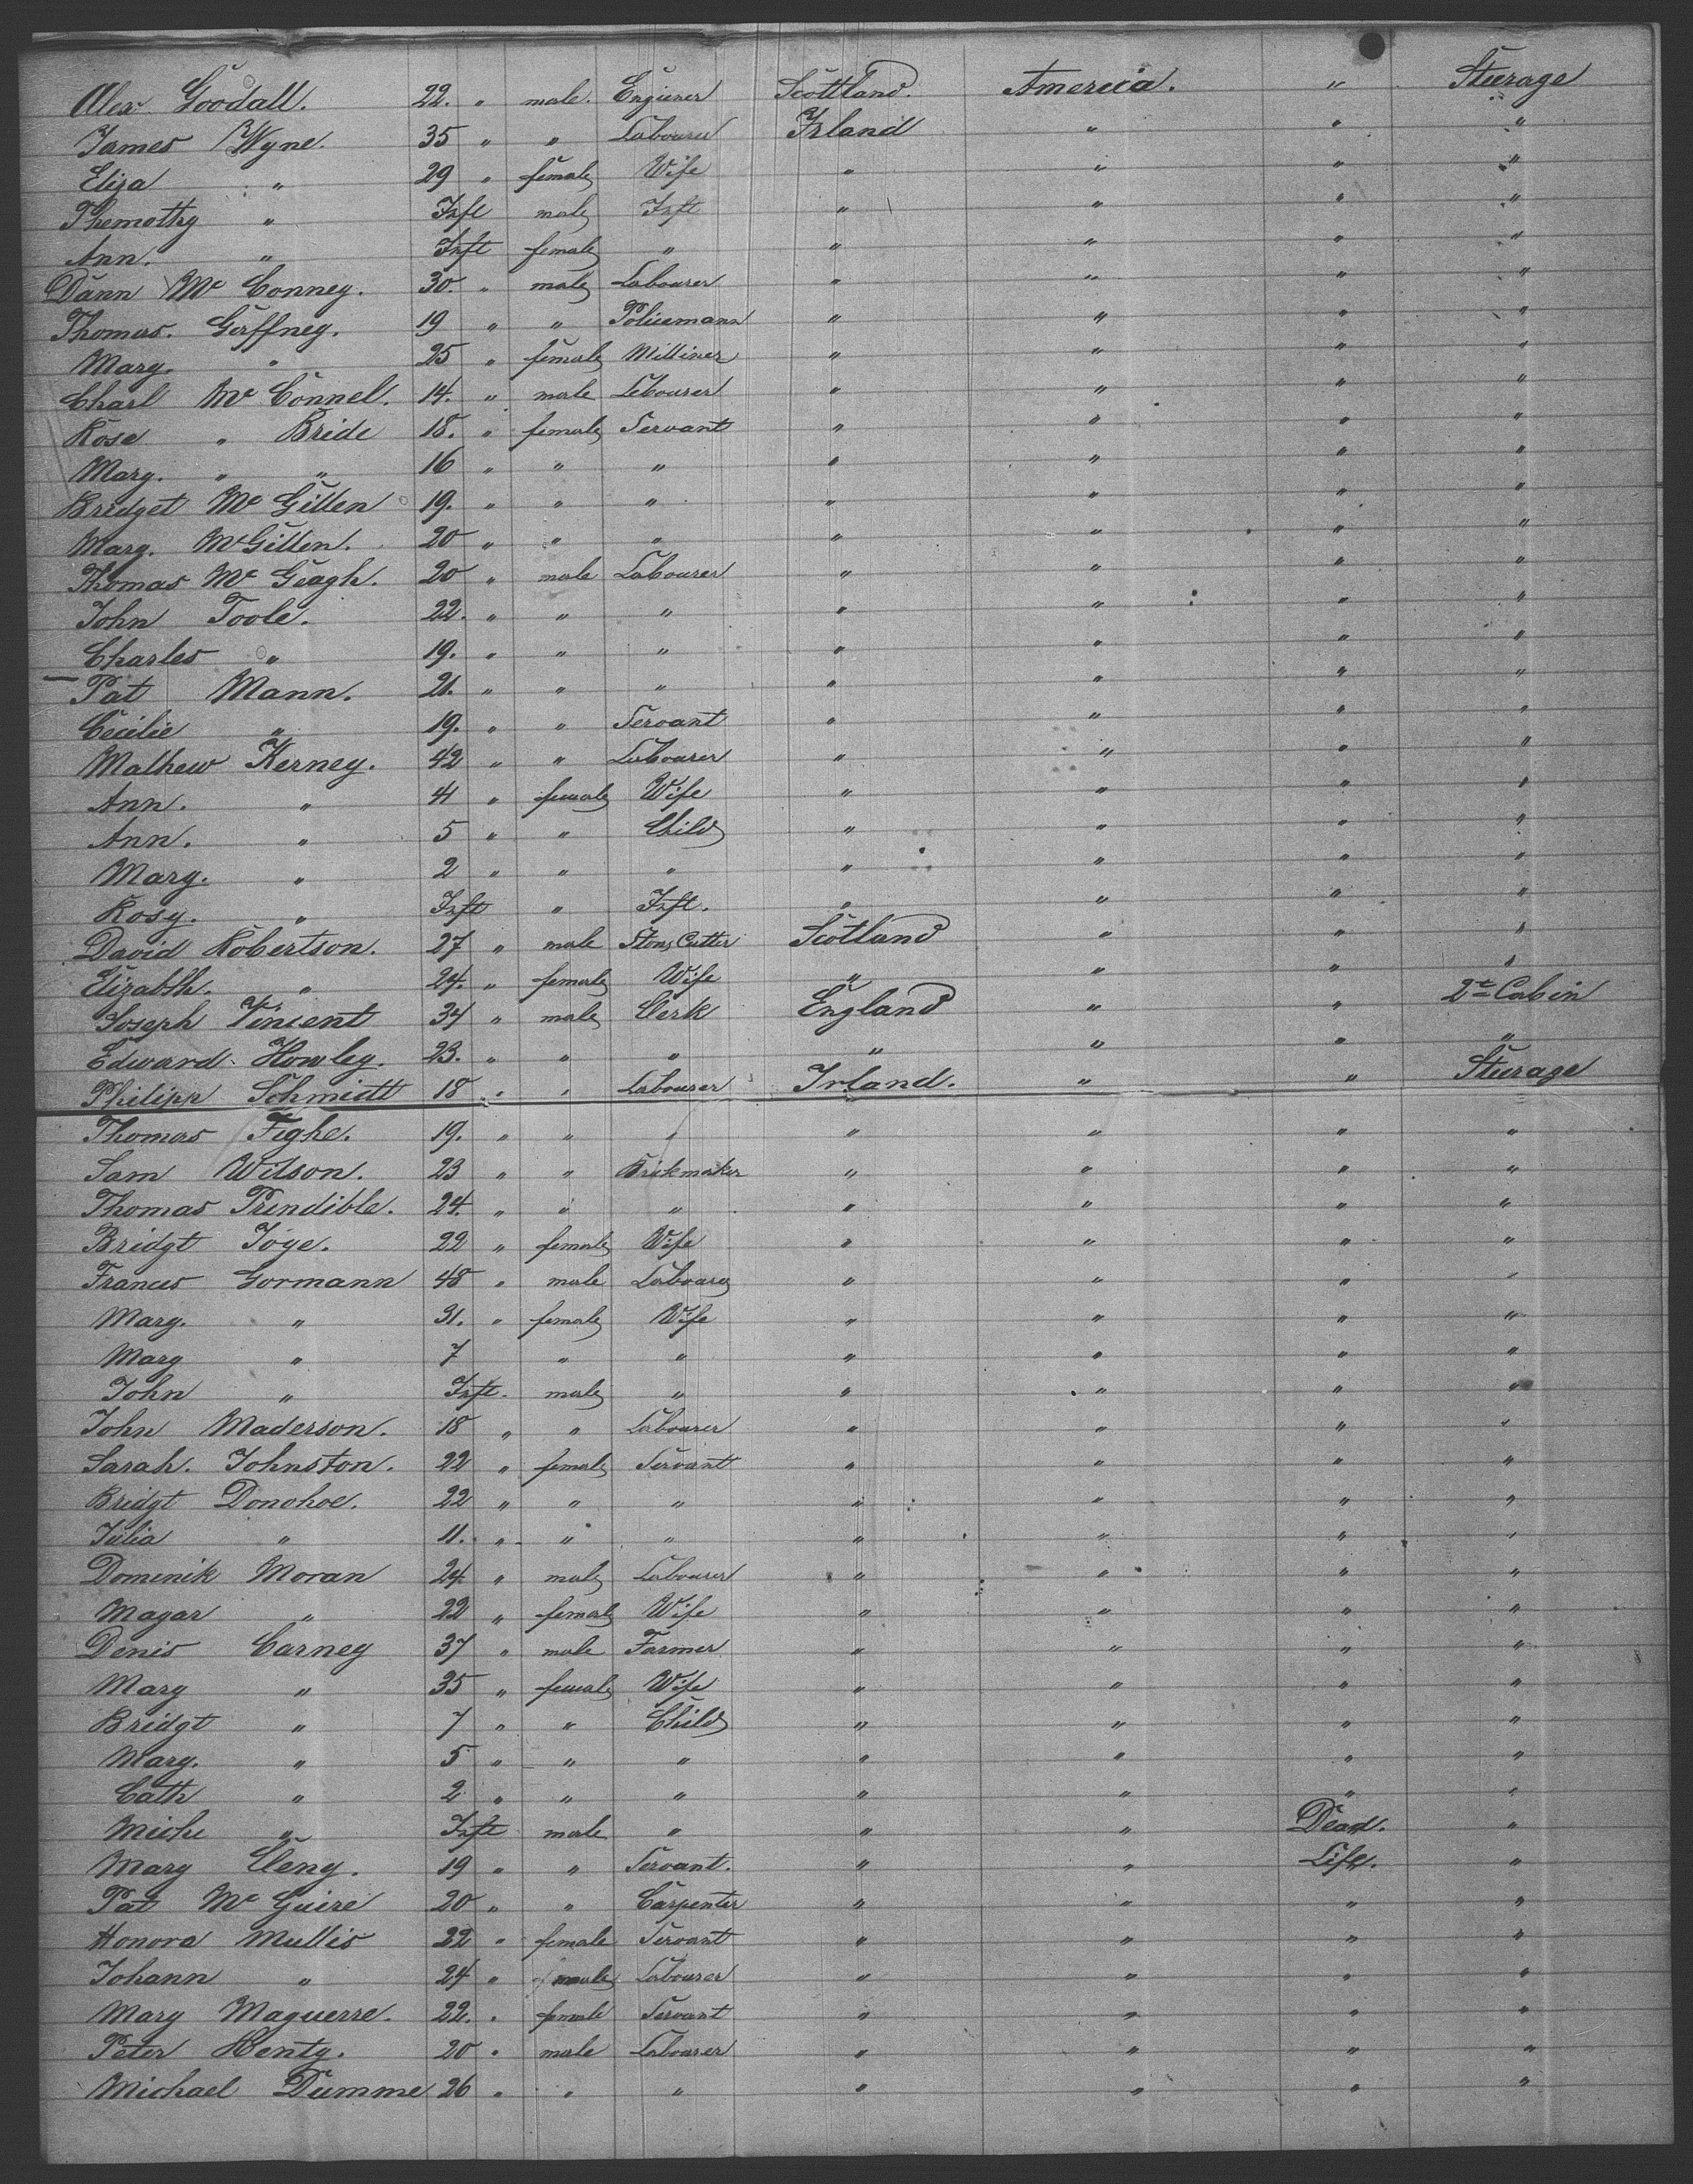 Alex Goodall. 22. " male. Engiener Scottland. America. " Steerage
James Wyne. 35 " " Labourer Irland " " "
Eliza " 29 " female Wife " " " "
Themothy " Inft male Inft " " " "
Ann. " Inft female " " " " "
Dann Mc Conney. 30. " male Labourer " " " "
Thomas. Gaffney. 19 " " Policemann " " " "
Mary. " 25 " female Milliner " " " "
Charl Mc Connel. 14. " male Labourer " " " "
Rose " Bride 18. " female Servant " " " "
Mary. " " 16 " " " " " " "
Bridget Mc Gillen 19. " " " " " " "
Mary. McGillen. 20 " " " " " " "
Thomas Mc Geagh. 20 " male Labourer " " " "
John Toole. 22. " " " " " " "
Charles " 19. " " " " " " "
Pat Mann. 21. " " " " " " "
Cecilie " 19. " " Servant " " " "
Mathew Kerney. 42 " " Labourer " " " "
Ann. " 41 " female Wife " " " "
Ann. " 5 " " Child " " " "
Mary. " 2 " " " " " " "
Rosy. " Inft " Inft. " " " "
David Robertson. 27 " male Stone Cutter Scotland " " "
Elizabth. " 24. " female Wife " " " "
Joseph Vincent 34 " male Clerk England " " 2t Cabin
Edward Howley. 23. " " " " " " "
Philipp Schmidt 18 " " Labourer Irland. " " Steerage
Thomas Tighe. 19. " " " " " " "
Sam Wilson. 23 " " Brikmaker " " " "
Thomas Prendible. 24. " " " " " " "
Bridgt Joye. 22 " female Wife " " " "
Frances Gormann 48 " male Labourer " " " "
Mary. " 31. " female Wife " " " "
Mary " 7 " " " " " "
John " Inft. male " " " " "
John Maderson. 18 " " Labourer " " " "
Sarah. Johnston. 22 " female Servant " " " "
Bridgt Donohoe. 22 " " " " " " "
Julia " 11. " " " " " " "
Dominik Moran 24 " male Labourer " " " "
Magar " 22 " female Wife " " " "
Denis Carney 37 " male Farmer " " " "
Mary " 35 " female Wife " " " "
Bridgt " 7 " " Child " " " "
Mary. " 5 " " " " " " "
Cath " 2 " " " " " " "
Miche " Inft male " " " Dead. "
Mary Cleny. 19 " " Servant. " " Life. "
Pat Mc Guire 20 " " Carpenter " " " "
Honora Mullis 22 " female Servant " " " "
Johann " 24 " male Labourer " " " "
Mary Maguerre. 22. " female Servant " " " "
Peter Henty. 20 " male Labourer " " " "
Michael Dumme 26 " " " " " " "